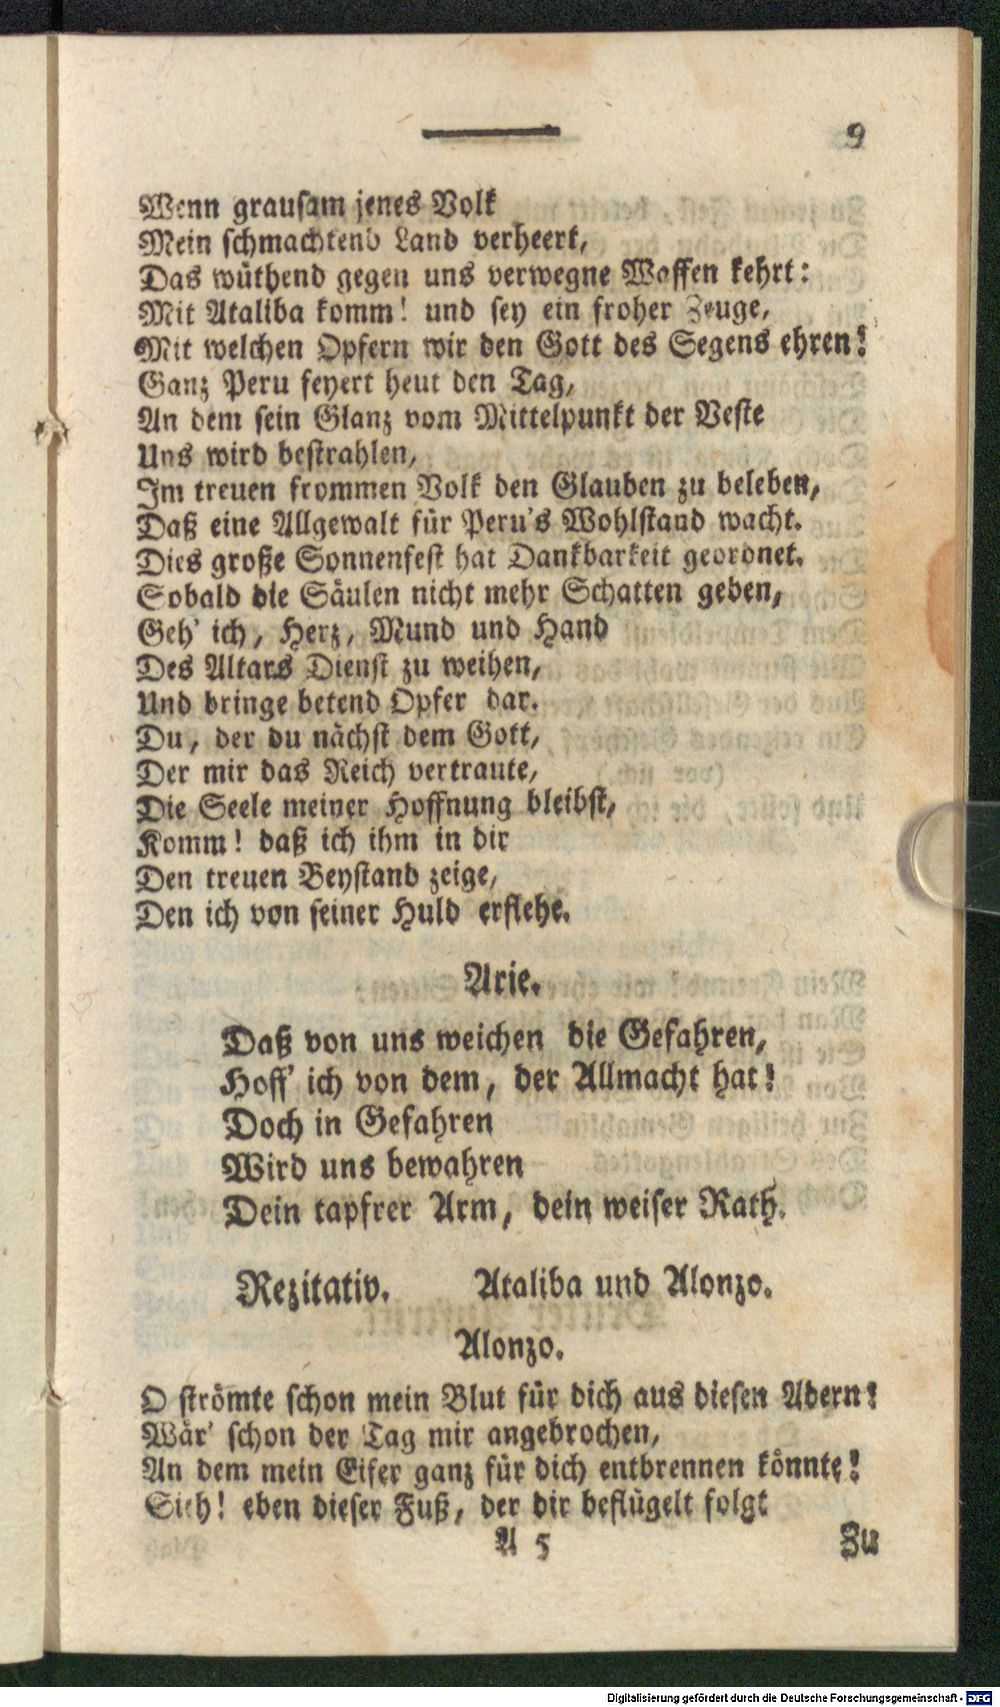 9
Wenn grausam jenes Volk
Mein schmachtend Land verheert,
Das wüthend gegen uns verwegne Waffen kehrt:
Mit Ataliba komm! und sey ein froher Zeuge,
Mit welchen Opfern wir den Gott des Segens ehren!
Ganz Peru feyert heut den Tag,
An dem sein Glanz vom Mittelpunkt der Veste
Uns wird bestrahlen,
Im treuen frommen Volk den Glauben zu beleben,
Daß eine Allgewalt für Peru's Wohlstand wacht.
Dies große Sonnenfest hat Dankbarkeit geordnet.
Sobald die Säulen nicht mehr Schatten geben,
Geh' ich, Herz, Mund und Hand
Des Altars Dienst zu weihen,
Und bringe betend Opfer dar.
Du, der du nächst dem Gott,
Der mir das Reich vertraute,
Die Seele meiner Hoffnung bleibst,
Komm! daß ich ihm in dir
Den treuen Beystand zeige,
Den ich von seiner Huld erflehe.
Arie.
Daß von uns weichen die Gefahren,
Hoff' ich von dem, der Allmacht hat!
Doch in Gefahren
Wird uns bewahren
Dein tapfrer Arm, dein weiser Rath.
Rezitativ. Ataliba und Alonzo.
Alonzo.
O strömte schon mein Blut für dich aus diesen Adern!
Wär' schon der Tag mir angebrochen,
An dem mein Eifer ganz für dich entbrennen könnte!
Sieh! eben dieser Fuß, der dir beflügelt folgt
A 5 Zu
Digitalisierung gefördert durch die Deutsche Forschungsgemeinschaft - DFG